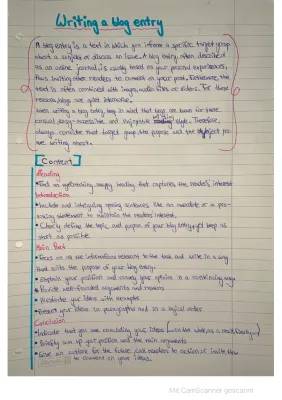 Writing a blog entry
A blog entry is a text in which you inform a specific target group
about a subject or discuss an issue. A blog entry, often described
as an online journal, is usually based on your personal experiences,
thus inviting other readers to comment on your post. Furthermore, the
text is often combined with images, audio files or videos. For these
reasons, blogs are quite interactive.
When writing a blog entry, keep in mind that blogs are known for their
casual, easy-accessible and descriptive style. Therefore,
always consider that target group, the purpose and the subject you
are writing about.
Content
Heading
Find an eye-catching, snappy heading that captures the reader's interest
Introduction
Include an intriguing opening sentence, like an anecdote or a pro-
voking statement to maintain the reader's interest.
Clearly define the topic and purpose of your blog entry, yet keep it
short as possible
Main Part
Focus on information relevant to the task and write in a way
that suits the purpose of your blog entry.
Explain your position and convey your opinion in a convincing way
Provide well-founded arguments and reasons
Illustrate your ideas with examples
Present your ideas in paragraphs and in a logical order
Conclusion
Indicate that you are concluding your ideas
Briefly sum up your position and the main arguments
Give an outlook for the future, call readers to action or invite them
to comment on your ideas.
Mit CamScanner gescannt